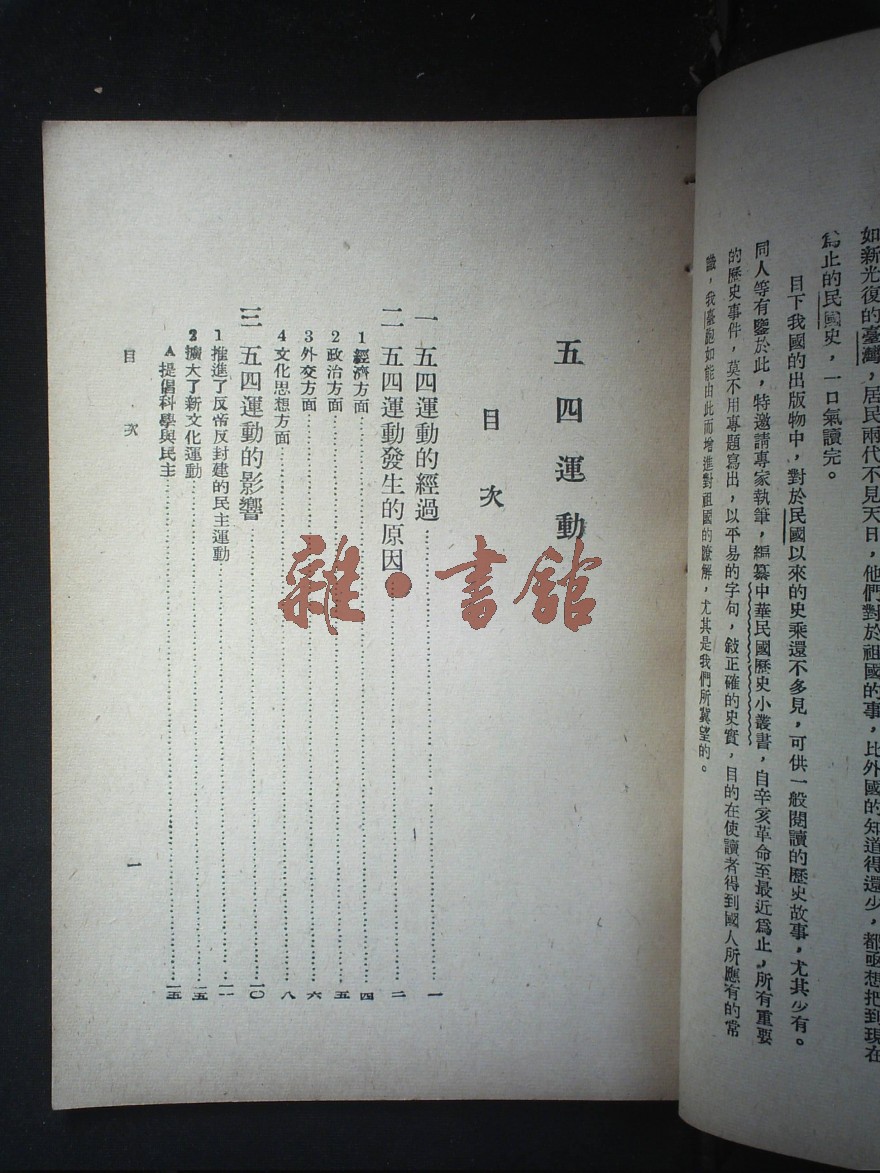 如新光復的臺灣，居民兩代不見天日，他們對於祖國的事，比外國的知道得還少，都亟想把到現在
爲止的民國史，一口氣讀完。
目下我國的出版物中，對於民國以來的史乘還不多見，可供一般閱讀的歷史故事，尤其少有。
同人等有鑒於此，特邀請專家執筆，編纂中華民國歷史小叢書，自辛亥革命至最近爲止，所有重要
的歷史事件，莫不用專題寫出，以平易的字句，敍正確的史實，目的在使讀者得到國人所應有的常
識，我臺胞如能由此而增進對祖國的瞭解，尤其是我們所冀望的。
五四運動
目次
一 五四運動的經過……一
二 五四運動發生的原因……二
1 經濟方面……四
2 政治方面……五
3 外交方面……六
4 文化思想方面……八
三 五四運動的影響……一〇
1 推進了反帝反封建的民主運動……一一
2 擴大了新文化運動……一五
A 提倡科學與民主……一五
目次
一
雜•書館